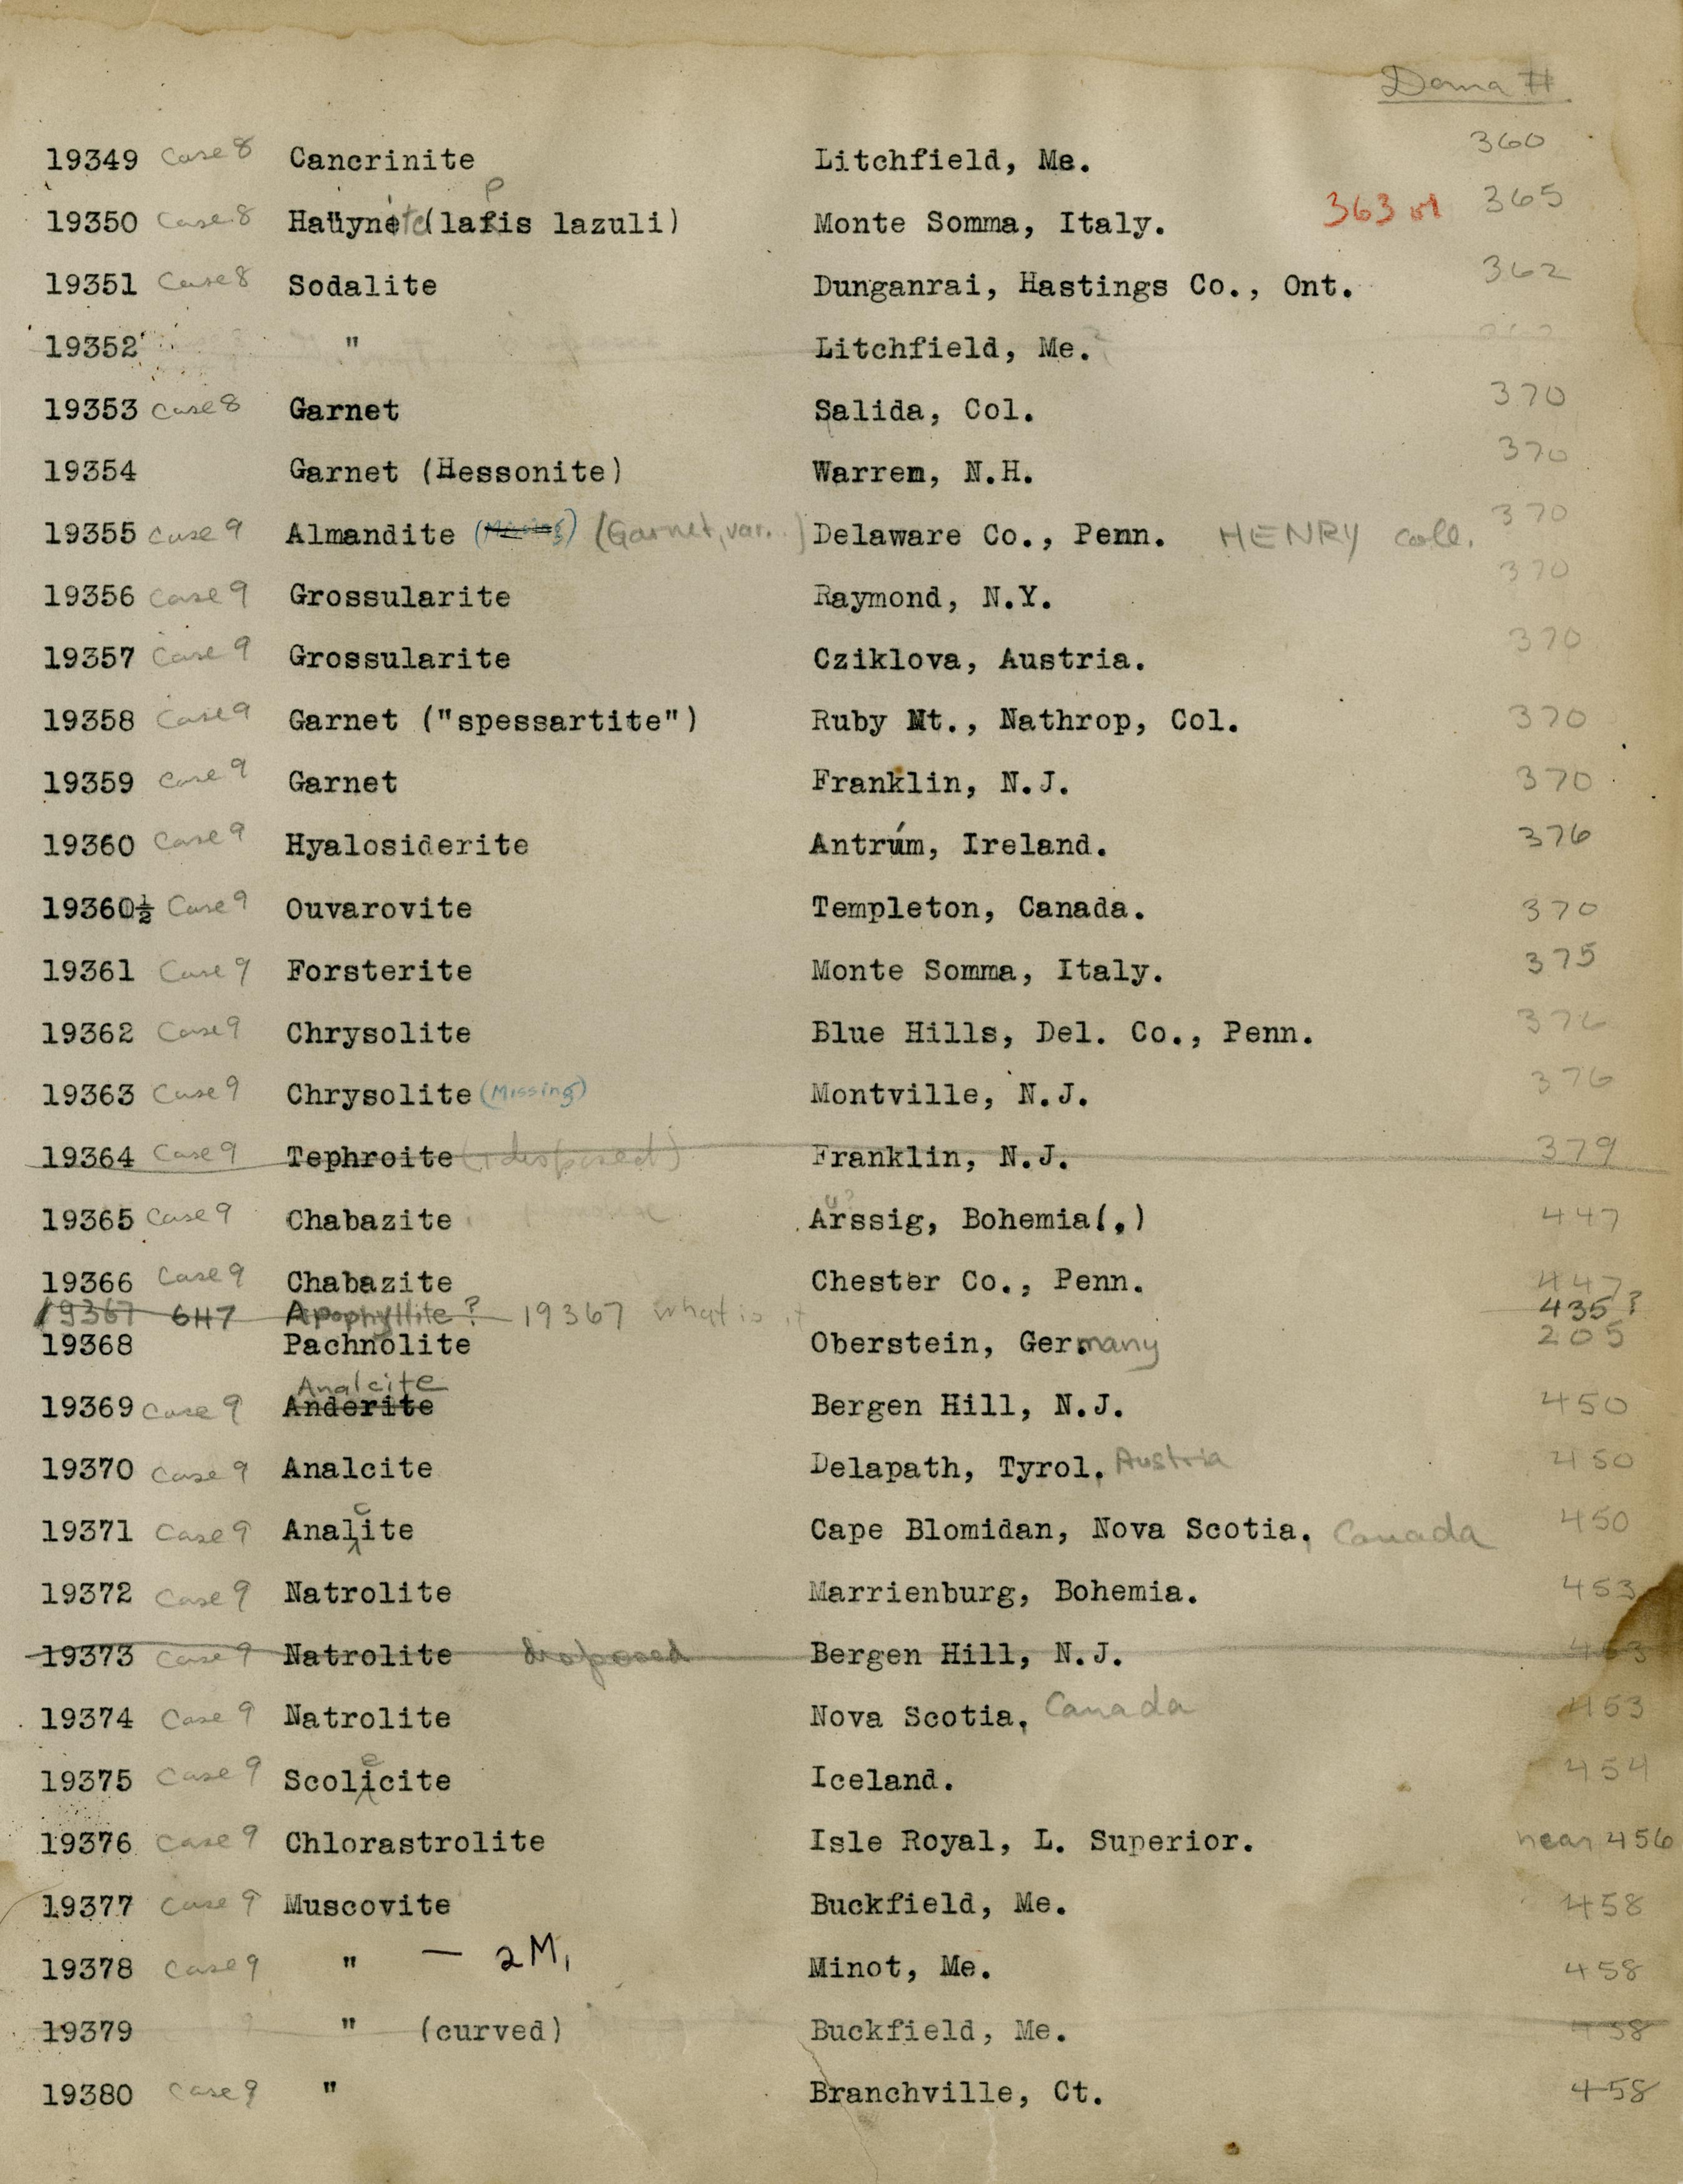 Dana #
19349 Case 8 Cancrinite Litchfield, Me. 360
19350 Case 8 Haüynite (lapis lazuli) Monte Somma, Italy. 363 or 365
19351 Case 8 Sodalite Dunganrai, Hastings Co., Ont. 362
19352 " Litchfield, Me.
19353 Case 8 Garnet Salida, Col. 370
19354 Garnet (Hessonite) Warren, N.H. 370
19355 Case 9 Almandite (Missing) (Garnet, var. ) Delaware Co., Penn. HENRY coll. 370
19356 Case 9 Grossularite Raymond, N.Y. 370
19357 Case 9 Grossularite Cziklova, Austria. 370
19358 Case 9 Garnet ("spessartite") Ruby Mt., Nathrop, Col. 370
19359 Case 9 Garnet Franklin, N.J. 370
19360 Case 9 Hyalosiderite Antrim, Ireland. 376
19360½ Case 9 Ouvarovite Templeton, Canada. 370
19361 Case 9 Forsterite Monte Somma, Italy. 375
19362 Case 9 Chrysolite Blue Hills, Del. Co., Penn. 376
19363 Case 9 Chrysolite (Missing) Montville, N.J. 376
19364 Case 9 Tephroite (disposed) Franklin, N.J. 379
19365 Case 9 Chabazite Arssig, Bohemia(.) u? 447
19366 Case 9 Chabazite Chester Co., Penn. 447
19367 6H7 Apophyllite? 19367 what is it 435?
19368 Pachnolite Oberstein, Germany 205
19369 Case 9 Anderite Analcite Bergen Hill, N.J. 450
19370 Case 9 Analcite Delapath, Tyrol. Austria 450
19371 Case 9 Analcite Cape Blomidan, Nova Scotia, Canada 450
19372 Case 9 Natrolite Marrienburg, Bohemia. 453
19373 Case 9 Natrolite disposed Bergen Hill, N.J. 453
19374 Case 9 Natrolite Nova Scotia, Canada 453
19375 Case 9 Scolecite Iceland. 454
19376 Case 9 Chlorastrolite Isle Royal, L. Superior. near 456
19377 Case 9 Muscovite Buckfield, Me. 458
19378 Case 9 " — 2M₁ Minot, Me. 458
19379 " (curved) Buckfield, Me. 458
19380 Case 9 " Branchville, Ct. 458